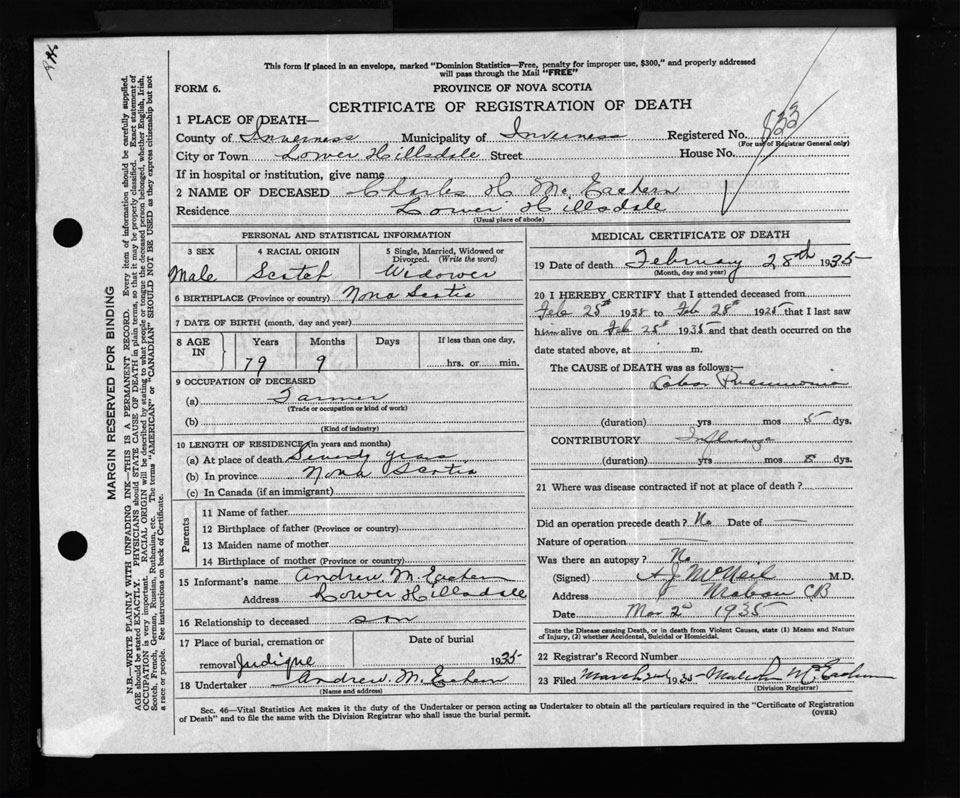 This form if placed in an envelope, marked "Dominion Statistics—Free, penalty for improper use, $300," and properly addressed
will pass through the Mail "FREE"
FORM 6. PROVINCE OF NOVA SCOTIA
CERTIFICATE OF REGISTRATION OF DEATH
1 PLACE OF DEATH—
County of Inverness Municipality of Inverness Registered No. 823
(For use of Registrar General only)
City or Town Lower Hillsdale Street House No.
If in hospital or institution, give name
2 NAME OF DECEASED Charles H McEachern
Residence Lower Hillsdale
(Usual place of abode)
PERSONAL AND STATISTICAL INFORMATION
3 SEX 4 RACIAL ORIGIN 5 Single, Married, Widowed or Divorced. (Write the word)
Male Scotch Widower
6 BIRTHPLACE (Province or country) Nova Scotia
7 DATE OF BIRTH (month, day and year)
8 AGE IN Years Months Days If less than one day,
79 9 hrs. or min.
9 OCCUPATION OF DECEASED
(a) Farmer
(Trade or occupation or kind of work)
(b)
(Kind of industry)
10 LENGTH OF RESIDENCE (in years and months)
(a) At place of death Seventy years
(b) In province Nova Scotia
(c) In Canada (if an immigrant)
Parents
11 Name of father
12 Birthplace of father (Province or country)
13 Maiden name of mother
14 Birthplace of mother (Province or country)
15 Informant's name Andrew McEachern
Address Lower Hillsdale
16 Relationship to deceased son
17 Place of burial, cremation or Date of burial
removal Judique 1935
18 Undertaker Andrew McEachern
(Name and address)
MEDICAL CERTIFICATE OF DEATH
19 Date of death February 28th 1935
(Month, day and year)
20 I HEREBY CERTIFY that I attended deceased from
Feb 25th 1935 to Feb 28th 1925 that I last saw
him alive on Feb 25th 1935 and that death occurred on the
date stated above, at m.
The CAUSE of DEATH was as follows:—
Lobar Pneumonia
(duration) yrs mos 5 dys.
CONTRIBUTORY Influenza
(duration) yrs mos 8 dys.
21 Where was disease contracted if not at place of death?
Did an operation precede death? No Date of —
Nature of operation —
Was there an autopsy? No
(Signed) A J McNeil M.D.
Address Mabou CB
Date Mar 2d 1935
State the Disease causing Death, or in death from Violent Causes, state (1) Means and Nature
of Injury, (2) whether Accidental, Suicidal or Homicidal.
22 Registrar's Record Number
23 Filed March 2nd 1935 Malcolm McEachern
(Division Registrar)
Sec. 46—Vital Statistics Act makes it the duty of the Undertaker or person acting as Undertaker to obtain all the particulars required in the "Certificate of Registration
of Death" and to file the same with the Division Registrar who shall issue the burial permit. (OVER)
MARGIN RESERVED FOR BINDING
N.B.—WRITE PLAINLY WITH UNFADING INK—THIS IS A PERMANENT RECORD. Every item of information should be carefully supplied.
AGE should be stated EXACTLY. PHYSICIANS should STATE CAUSE OF DEATH in plain terms, so that it may be properly classified. Exact statement of
OCCUPATION is very important. RACIAL ORIGIN will be described by stating to what people or tongue the deceased person belonged, whether English, Irish,
Scotch, French, German, Russian, Ruthenian, etc. The terms "AMERICAN" or "CANADIAN" SHOULD NOT BE USED as they express citizenship but not
a race or people. See instructions on back of Certificate.